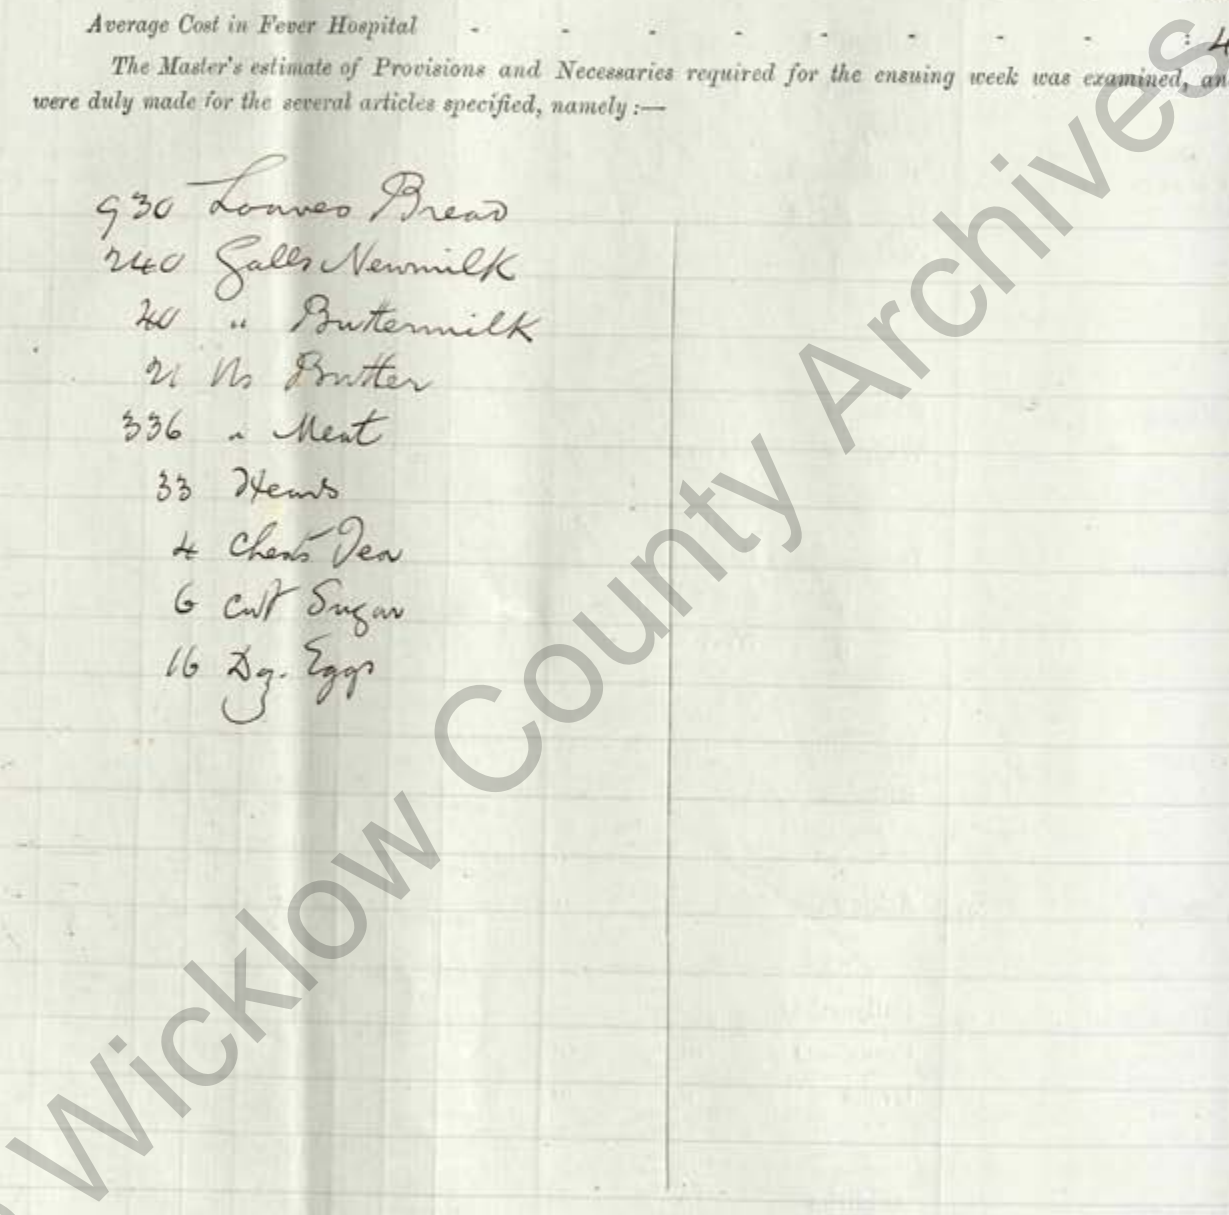 Average Cost in Fever Hospital - - - - - - - - : 4
The Master's estimate of Provisions and Necessaries required for the ensuing week was examined, an
were duly made for the several articles specified, namely :—
930 Loaves Bread
240 Galls Newmilk
20 " Buttermilk
21 lbs Butter
336 " Meat
33 Heads
4 Chests Tea
6 Cwt Sugar
16 Dz. Eggs
Wicklow County Archives